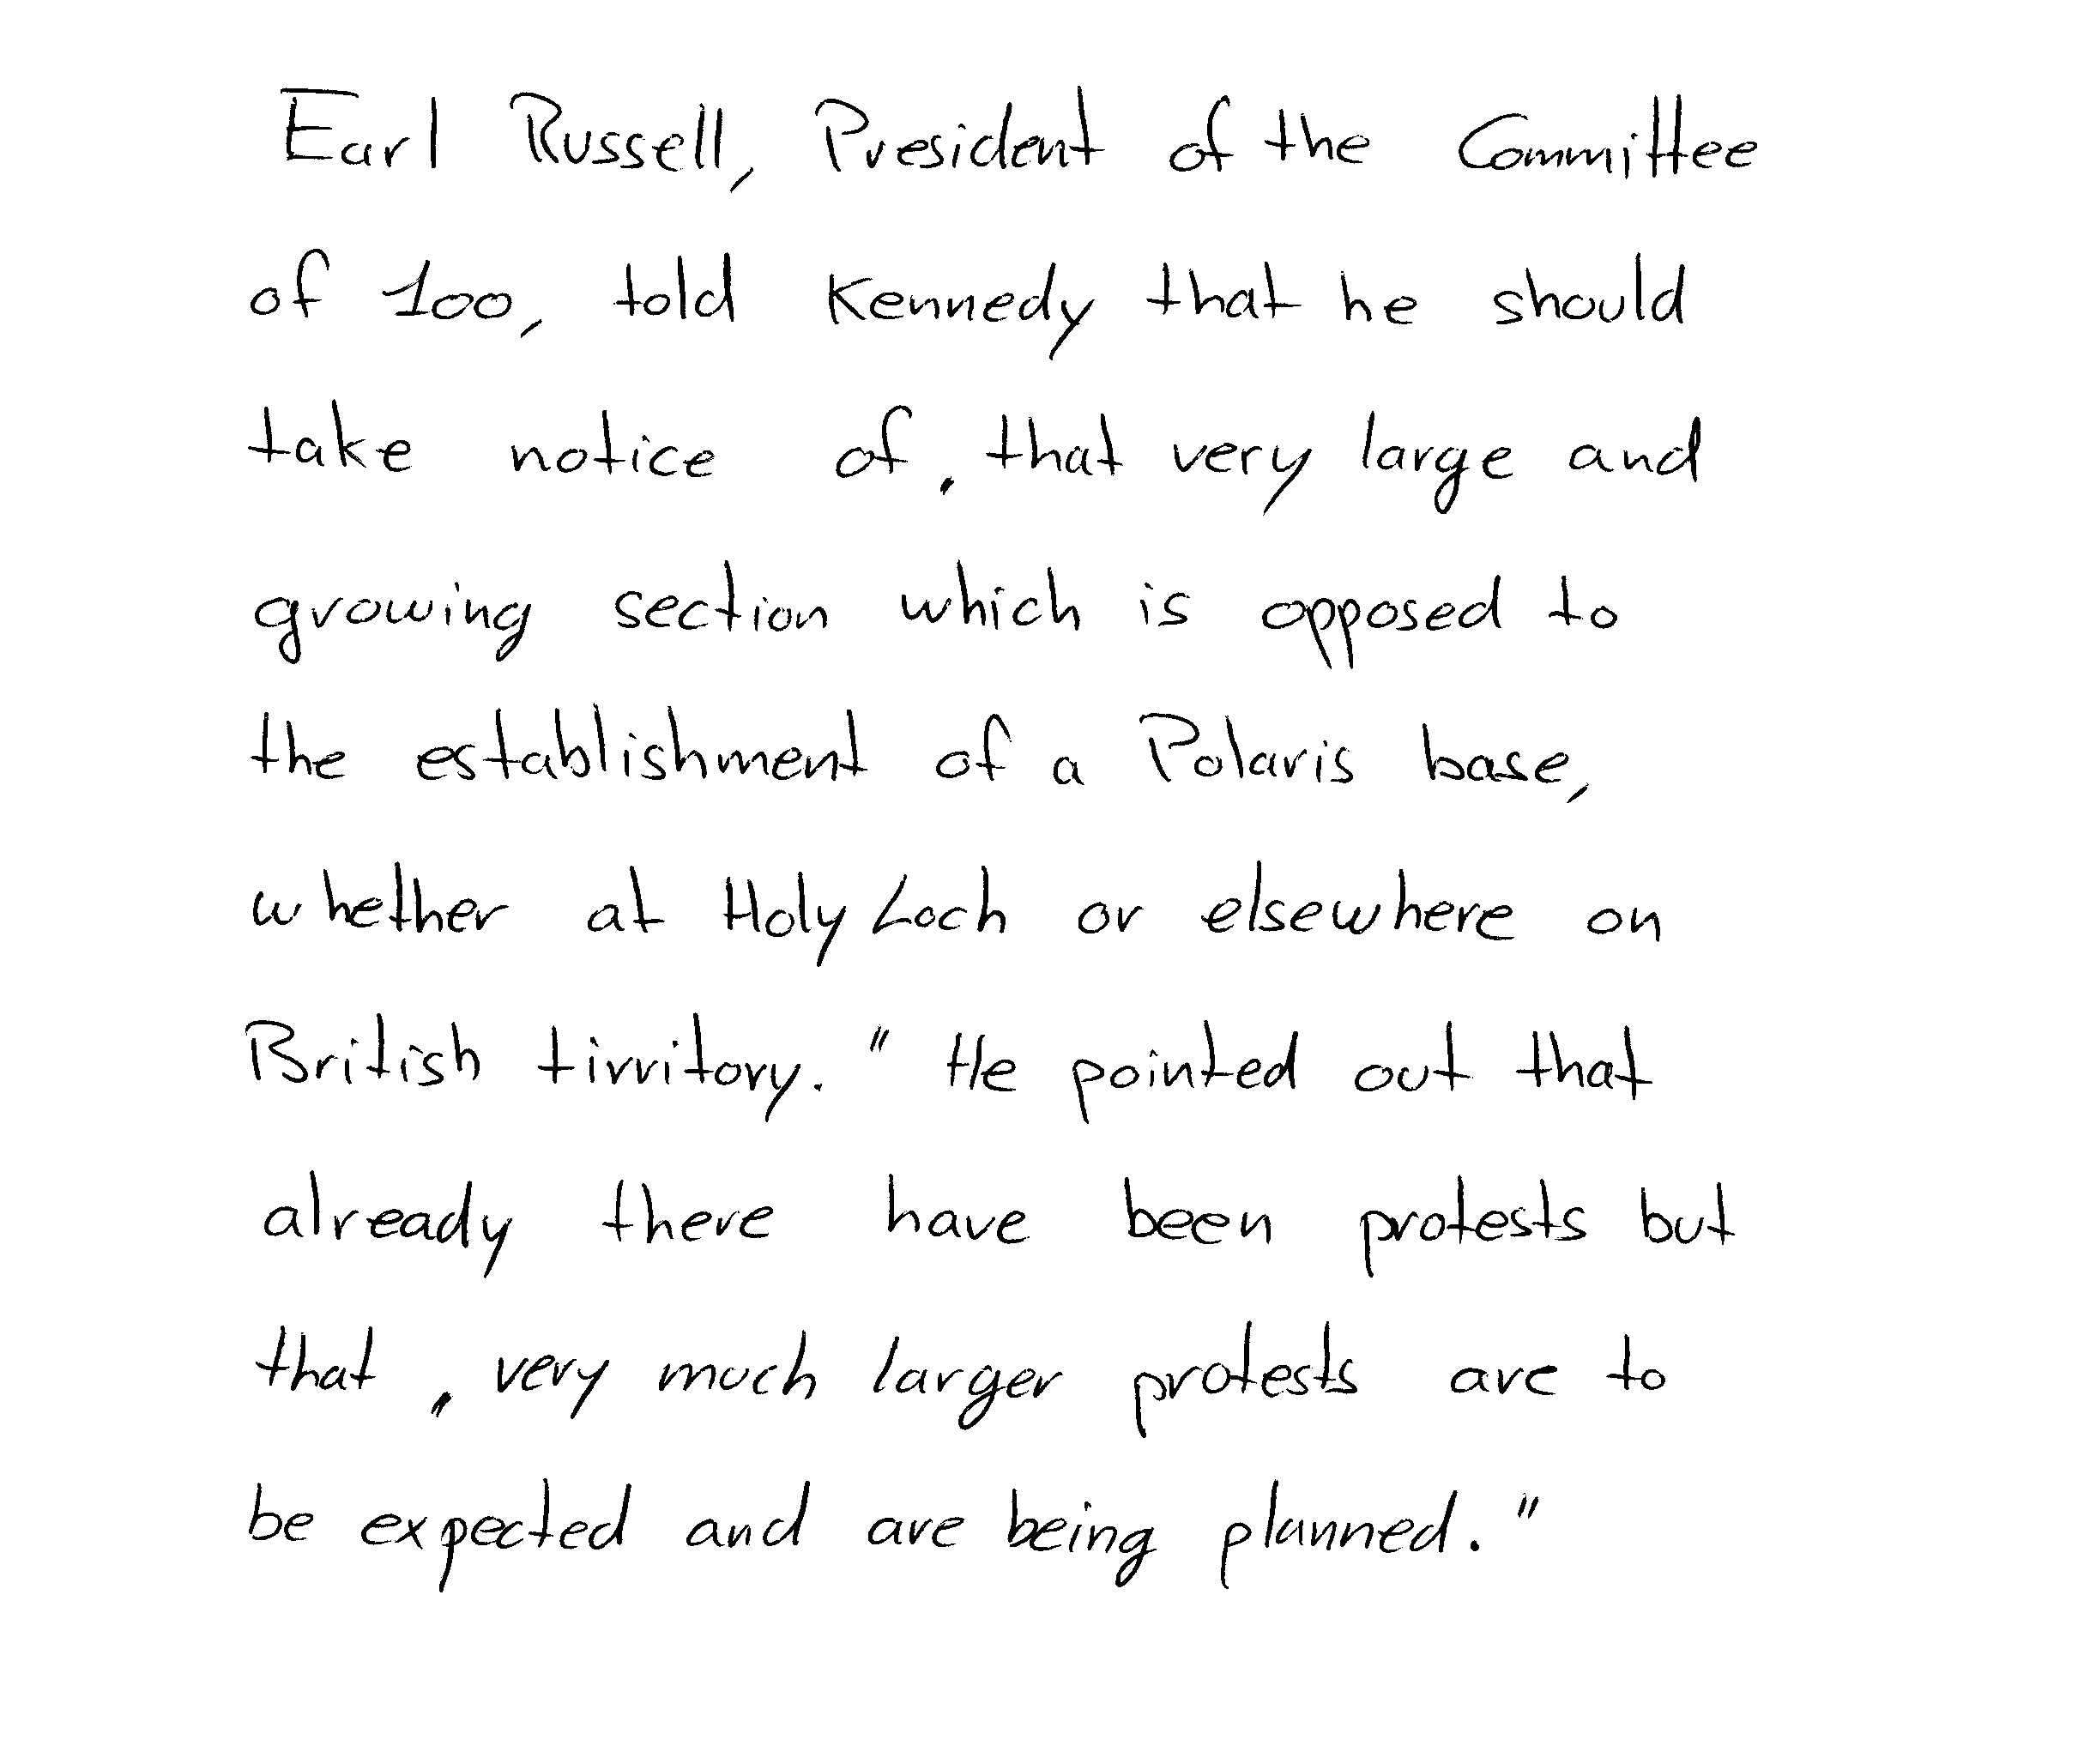 Earl Russell, President of the Committee
of 100, told Kennedy that he should
take notice of, that very large and
growing section which is opposed to
the establishment of a Polaris base,
whether at Holy Loch or elsewhere on
British tirritory." He pointed out that
already there have been protests but
that , very much larger protests are to
be expected and are being planned."